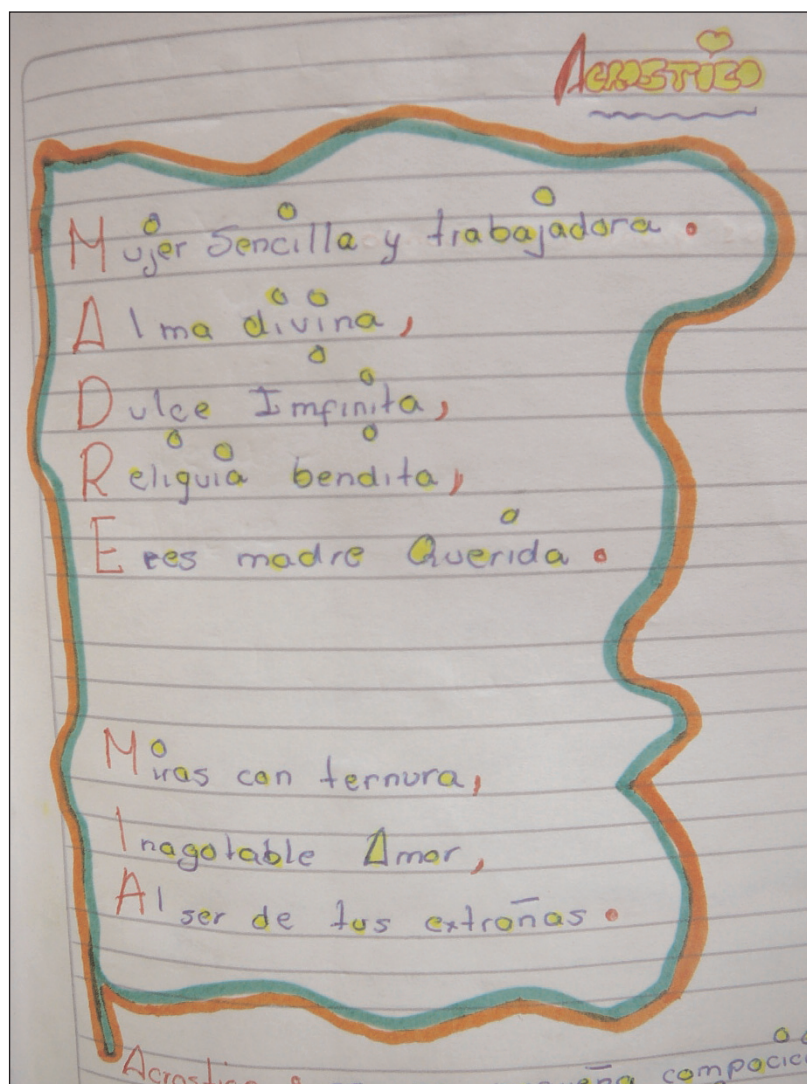 Acrostico
Mujer Sencilla y trabajadora.
Alma divina,
Dulce Imfinita,
Reliquia bendita,
Eres madre Querida.
Miras con ternura,
Inagotable Amor,
Al ser de tus extrañas.